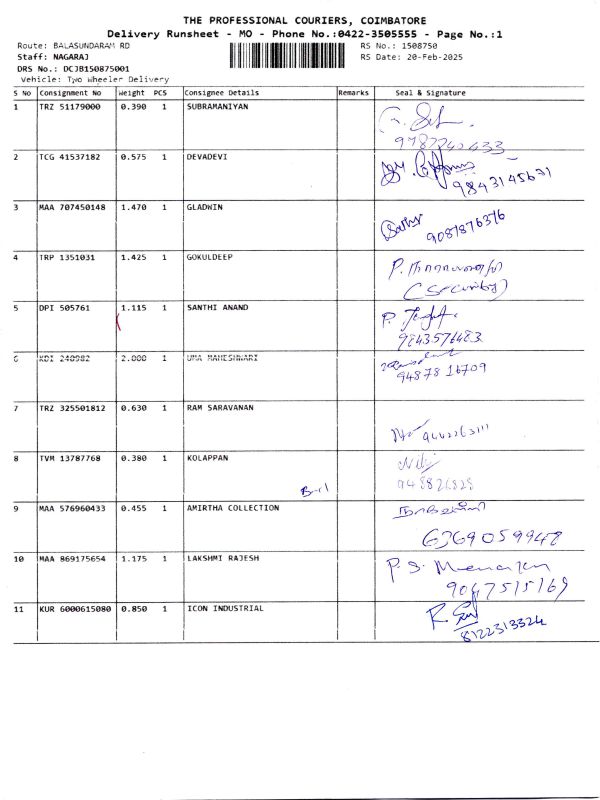 THE PROFESSIONAL COURIERS, COIMBATORE
Delivery Runsheet - MO - Phone No.:0422-3505555 - Page No.:1
Route: BALASUNDARAM RD
RS No.: 1508750
Staff: NAGARAJ
RS Date: 20-Feb-2025
DRS No.: DCJB150875001
Vehicle: Two Wheeler Delivery
S No Consignment No Weight PCS Consignee Details Remarks Seal & Signature
1 TRZ 51179000 0.390 1 SUBRAMANIYAN
2 TCG 41537182 0.575 1 DEVADEVI
9843145631
3 MAA 707450148 1.470 1 GLADWIN
9087876376
4 TRP 1351031 1.425 1 GOKULDEEP
(Security)
5 DPI 505761 1.115 1 SANTHI ANAND
9843576483
6 KDI 240982 2.000 1 UMA MAHESHWARI
94878 16709
7 TRZ 325501812 0.630 1 RAM SARAVANAN
8 TVM 13787768 0.380 1 KOLAPPAN
9 MAA 576960433 0.455 1 AMIRTHA COLLECTION
6369059948
10 MAA 869175654 1.175 1 LAKSHMI RAJESH
9047515169
11 KUR 6000615080 0.850 1 ICON INDUSTRIAL
8122313324